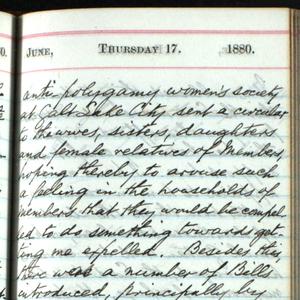 June, Thursday 17. 1880.
anti-polygamy women's society
at Salt Lake City sent a circular
to the wives, sisters, daughters
and female relatives of Members
hoping thereby to arouse such
a feeling in the households of
Members that they would be compel-
led to do something towards get-
ting me expelled. Besides this
there were a number of Bills
introduced, principally by